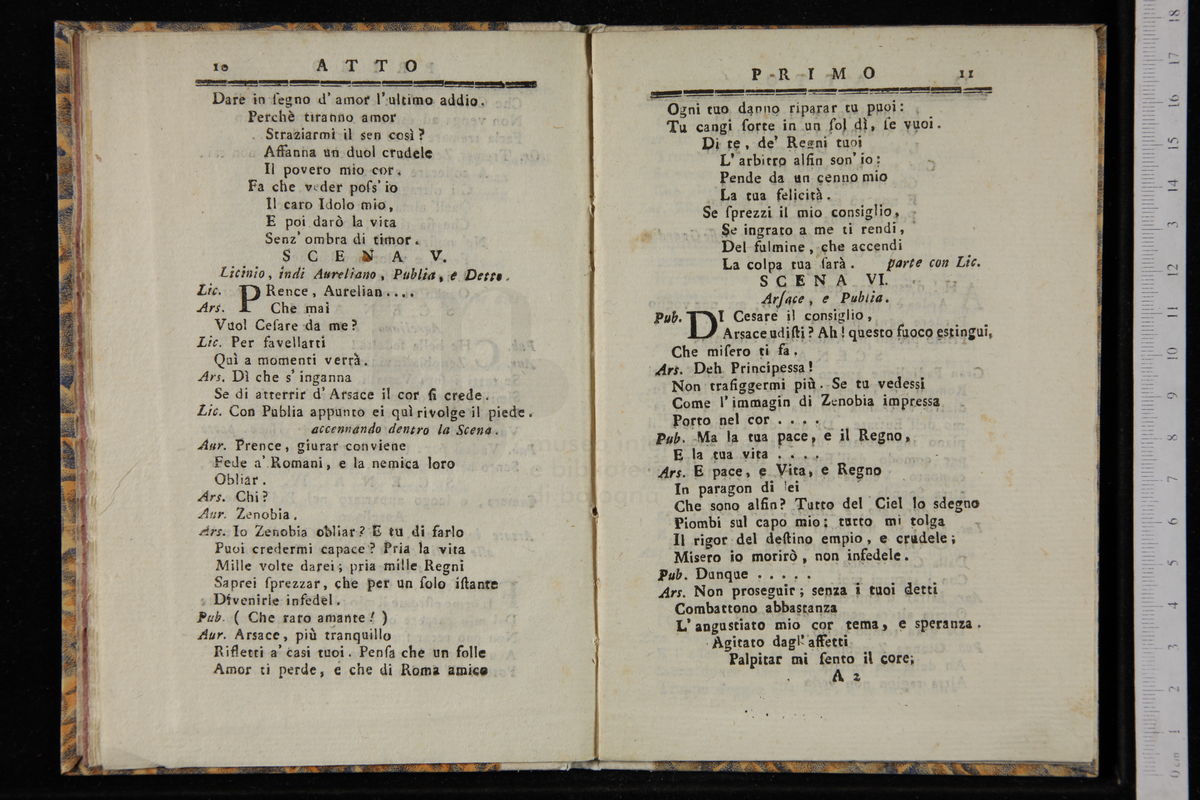 10 ATTO
Dare in ſegno d' amor l'ultimo addio.
Perchè tiranno amor
Straziarmi il sen così?
Affanna un duol crudele
Il povero mio cor.
Fa che veder poſs' io
Il caro Idolo mio,
E poi darò la vita
Senz' ombra di timor.
SCENA V.
Licinio, indi Aureliano, Publia, e Detto.
Lic. PRence, Aurelian....
Ars. Che mai
Vuol Ceſare da me?
Lic. Per favellarti
Quì a momenti verrà.
Ars. Dì che s' inganna
Se di atterrir d' Arsace il cor ſi crede.
Lic. Con Publia appunto ei quì rivolge il piede.
accennando dentro la Scena.
Aur. Prence, giurar conviene
Fede a' Romani, e la nemica loro
Obliar.
Ars. Chi?
Aur. Zenobia.
Ars. Io Zenobia obliar? E tu di farlo
Puoi credermi capace? Pria la vita
Mille volte darei; pria mille Regni
Saprei ſprezzar, che per un ſolo iſtante
Divenirle infedel.
Pub. ( Che raro amante! )
Aur. Arsace, più tranquillo
Rifletti a' casi tuoi. Penſa che un folle
Amor ti perde, e che di Roma amico
PRIMO 11
Ogni tuo danno riparar tu puoi:
Tu cangi ſorte in un ſol dì, ſe vuoi.
Di te, de' Regni tuoi
L' arbitro alfin son' io:
Pende da un cenno mio
La tua felicità.
Se ſprezzi il mio consiglio,
Se ingrato a me ti rendi,
Del fulmine, che accendi
La colpa tua ſarà. parte con Lic.
SCENA VI.
Arſace, e Publia.
Pub. DI Cesare il consiglio,
Arsace udiſti? Ah! queſto fuoco estingui,
Che miſero ti fa.
Ars. Deh Principessa!
Non trafiggermi più. Se tu vedessi
Come l'immagin di Zenobia impressa
Porto nel cor ....
Pub. Ma la tua pace, e il Regno,
E la tua vita ....
Ars. E pace, e Vita, e Regno
In paragon di lei
Che sono alfin? Tutto del Ciel lo sdegno
Piombi sul capo mio; tutto mi tolga
Il rigor del deſtino empio, e crudele;
Misero io morirò, non infedele.
Pub. Dunque .....
Ars. Non proseguir; senza i tuoi detti
Combattono abbastanza
L' angustiato mio cor tema, e speranza.
Agitato dagl' affetti
Palpitar mi ſento il core;
A 2